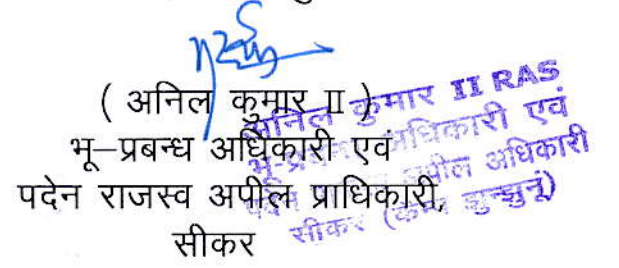 ( अनिल कुमार II )
भू–प्रबन्ध अधिकारी एवं
पदेन राजस्व अपील प्राधिकारी,
सीकर
अनिल कुमार II RAS
भू-प्रबन्ध अधिकारी एवं
पदेन अपील अधिकारी
सीकर (कैम्प झुन्झुनूं)